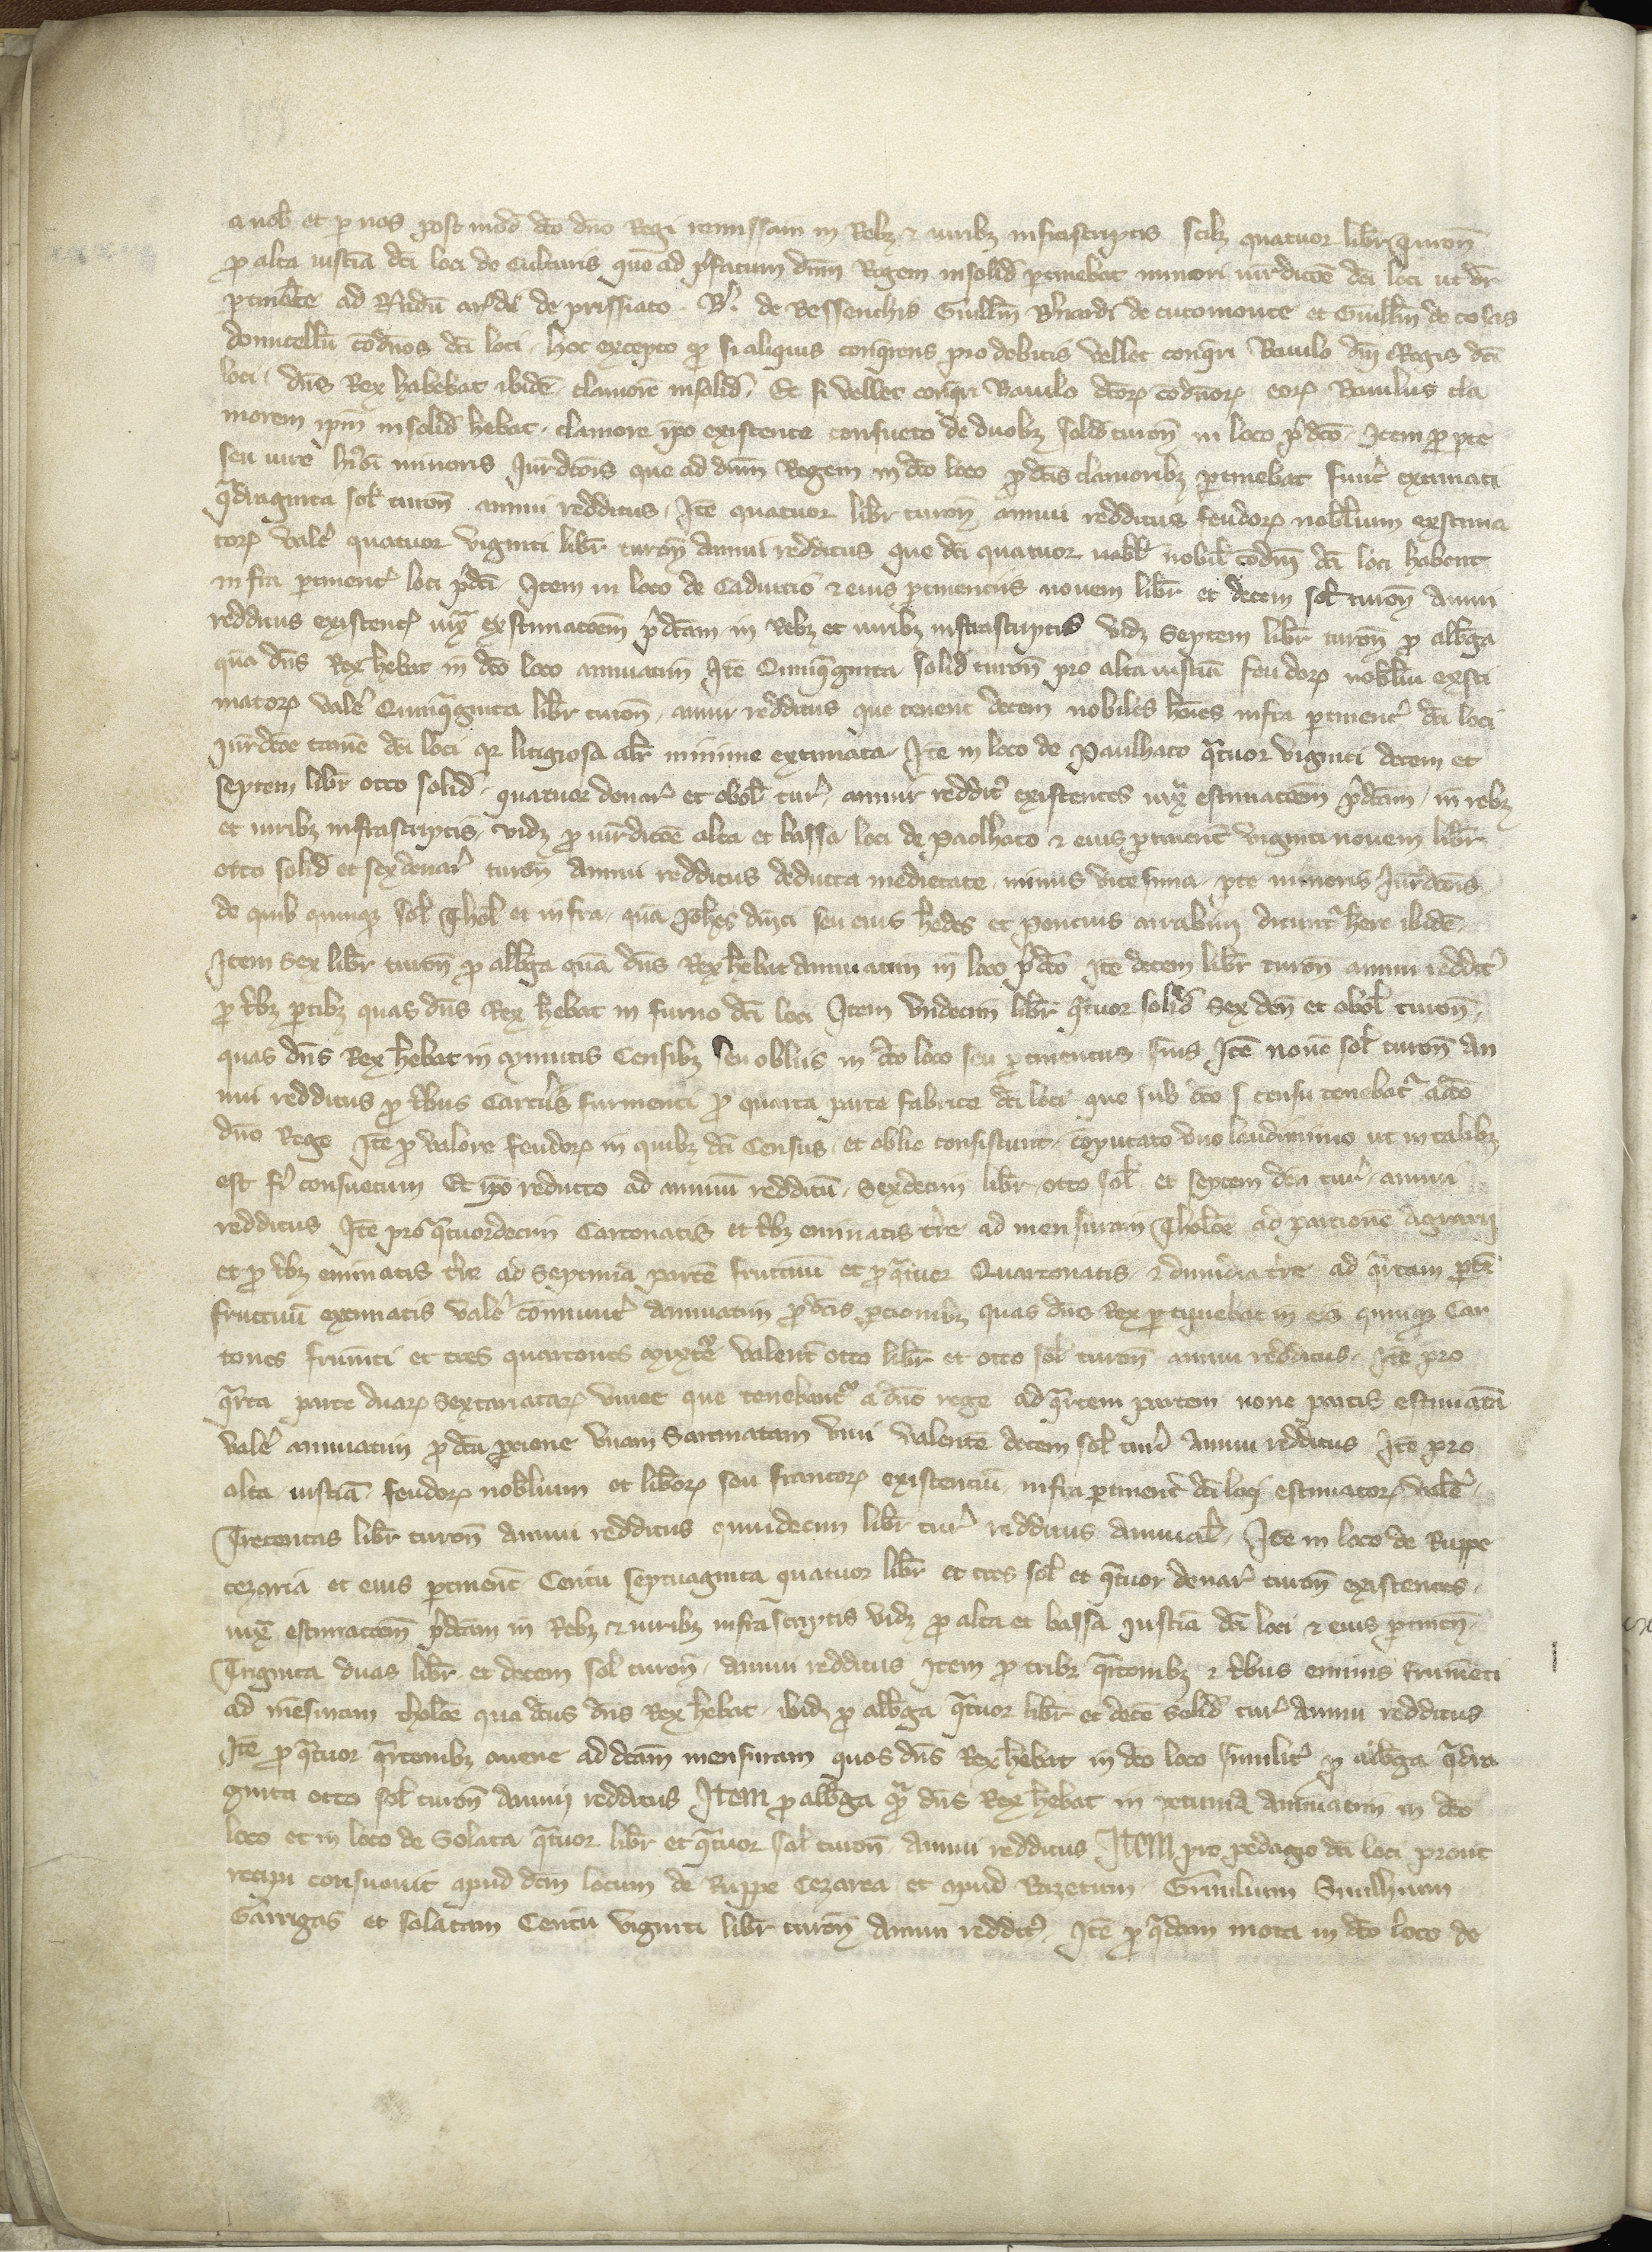 a nob̄ et p nos post mod̄ dc̄o dn̄o Regi remissam in Rebz & iuribz infrascriptis scilz quatuor libr̄ Turon̄
ꝓ alta iusticia dc̄i loci de Culturis que ad p̄fatum dn̄m Regem insolid̄ ptinebat minori iurdictōe dc̄i loci ut dr̄
ptinēte ad de prissiato de Bessenchis Guill̄m B̄nardi de cutomonte et Guill̄m de
domicell̄u cōdn̄os dc̄i loci hoc excepto ꝙ si aliquis conq̄rens pro debitis vellet conq̄ri Baiulo dn̄i Regis dc̄i
loci dn̄s Rex habebat ibidē clamorē insolid̄ Et si vellet conq̄ri Baiulo dc̄orꝫ cōdn̄orꝫ eorꝫ Baiulus cla
morem ip̄m insolid̄ hēbat clamore ip̄o existente consueto de duobz solid̄ turon̄ in loco p̄dc̄o Item ꝓ pte
seu iure minoris Iurdc̄ōis que ad dn̄m Regem in dc̄o loco ꝓ dc̄is clamoribz ptinebat extimati
q̄draginta sol̄ turon̄ annui redditus Itē quatuor libr̄ turon̄ annui redditus feudorꝫ nobilium extima
torꝫ valē quatuor viginti libr̄ turon̄ annui redditus que dc̄i quatuor nobil̄ cōdn̄i dc̄i loci habent
infra ptinent̄ loci p̄dc̄i Item in loco de & eius ptinenciis novem libr̄ et decem sol̄ turon̄ annui
redditus existent̄ iux̄ extimac̄oem p̄dc̄am in Rebz et iuribz infrascriptis vidz Septem libr̄ turon̄ ꝓ alb̄ga
quā dn̄s Rex hēbat in dc̄o loco annuatim Itē Quinq̄ginta solid̄ turon̄ pro alta iusticia feudorꝫ nobiliū exsti
matorꝫ valē Quinq̄ginta libr̄ turon̄ annui redditus que tenent decem nobiles hōies infra ptinent̄ dc̄i loci
iurdc̄oe tamē dc̄i loci q̄ litigiosa minime extimata Itē in loco de Paulhaco q̄tuor viginti decem et
septem libr̄ octo solid̄ quatuor denar̄ et obol̄ tur̄ annui reddit̄ existentes iux̄ estimac̄oem p̄dc̄am in rebz
et iuribz infrascriptis vidz ꝓ iurdictōe alta et bassa loci de Paolhaco & eius ptinent̄ viginti novem libr̄
octo solid̄ et sex denar̄ turon̄ annui redditus deducta medietate minus vicesima pte minoris Iurdc̄ōis
de quib quinqꝫ sol̄ Thol̄ et infra quā Joh̄es seu eius h̄edes et Poncius dicunt̄ hēre ibidē
Item Sex libr̄ turon̄ ꝓ alb̄ga quā dn̄s Rex hēbat annuatim in loco p̄dc̄o Itē decem libr̄ turon̄ annui reddit̄
ꝓ t̄bz ptibz quas dn̄s Rex hēbat in furno dc̄i loci Item undecim libr̄ q̄tuor solid̄ Sex den̄ et obol̄ turon̄
quas dn̄s Rex hēbat in mynutis Censibz seu obliis in dc̄o loco seu ptinentiis suis Itē novē sol̄ turon̄ an
nui redditus ꝓ t̄bus furmenti ꝓ quarta parte fabrice dc̄i loci que sub dc̄o censu tenebat̄ a dc̄o
dn̄o Rege Itē ꝓ valore feudorꝫ in quibz dc̄i Census et oblie consistunt computato uno laudimimo ut in talibz
est fi consuetum Et ip̄o reducto ad annuū redditū Sexdecim libr̄ octo sol̄ et septem den̄ tur̄ annui
redditus Itē pro q̄tuordecim Cartonatis et t̄bz eminatis t̄re ad mensuram Tholōe ad parcionē agrarii
et ꝓ t̄bz eminatis t̄re ad Septimā partē fructuū et ꝓ q̄tuor Quartonatis & dimidia t̄re ad q̄rtam ptē
fructuū extimatis valē cōmunit̄ annuatim ꝓ dc̄is porcionibz quas dn̄s Rex pcipiebat in eis quinqꝫ Car
tones frumēti et tres quartones mixt̄e valent̄ octo libr̄ et octo sol̄ turon̄ annui redditus Itē pro
q̄rta parte duarꝫ Sextariatarꝫ vinee que tenebant̄ a dn̄o rege ad q̄rtem partem none partis
valē annuatim ꝓ dc̄a porcione unam Saumatam vini valentē decem sol̄ tur̄ annui redditus Itē pro
alta iusticiā feudorꝫ nobilium et liberorꝫ seu francorꝫ existenciū infra ptinent̄ dc̄i loci estimatorꝫ valē
Trecentas libr̄ turon̄ annui redditus quindecim libr̄ tur̄ redditus annual̄ Itē in loco de Ruppe
cezaria et eius ptinent̄ Centū septuaginta quatuor libr̄ et tres sol̄ et q̄tuor denar̄ turon̄ existentes
iux̄ estimac̄oem p̄dc̄am in Rebz & iuribz infrascriptis vidz ꝓ alta et bassa iusticia dc̄i loci & eius ptinen̄
Triginta duas libr̄ et decem sol̄ turon̄ annui redditus Item ꝓ tribz q̄rtonibz & t̄bus eminis frumēti
ad mēsuram tholōe qua dc̄us dn̄s Rex hēbat ibid̄ ꝓ alb̄ga q̄tuor libr̄ et decē solid̄ tur̄ annui redditus
Itē ꝓ q̄tuor q̄rtonibz avene ad dc̄am mensuram quos dn̄s Rex hēbat in dc̄o loco similit̄ ꝓ alb̄ga q̄dra
ginta octo sol̄ turon̄ annui redditus Item ꝓ alb̄ga q̄ dn̄s Rex hēbat in pecunia annuatim in dc̄o
loco et in loco de Solata q̄tuor libr̄ et q̄tuor sol̄ turon̄ annui redditus Item pro pedagio dc̄i loci prout
recipi consuevit apud dc̄m locum de Ruppe Cezarea et apud Bazetum
Garrigas et solatam Centū viginti libr̄ turon̄ annui reddit̄ Itē ꝓ q̄dam mota in dc̄o loco de